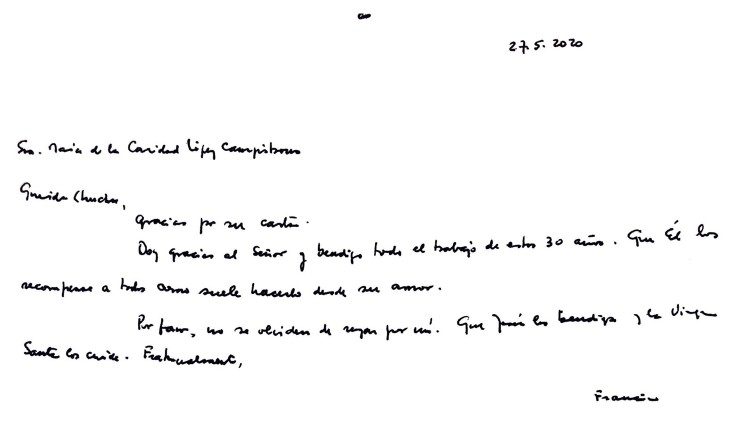 27.5.2020
Sra. Maria de la Caridad López Campistrous
Querida Chucha,
gracias por su carta.
Doy gracias al Señor y bendigo todo el trabajo de estos 30 años. Que Él los
recompense a todos como suele hacerlo desde su amor.
Por favor, no se olviden de rezar por mí. Que Jesús los bendiga y la Virgen
Santa los cuide. Fraternalmente,
Francisco